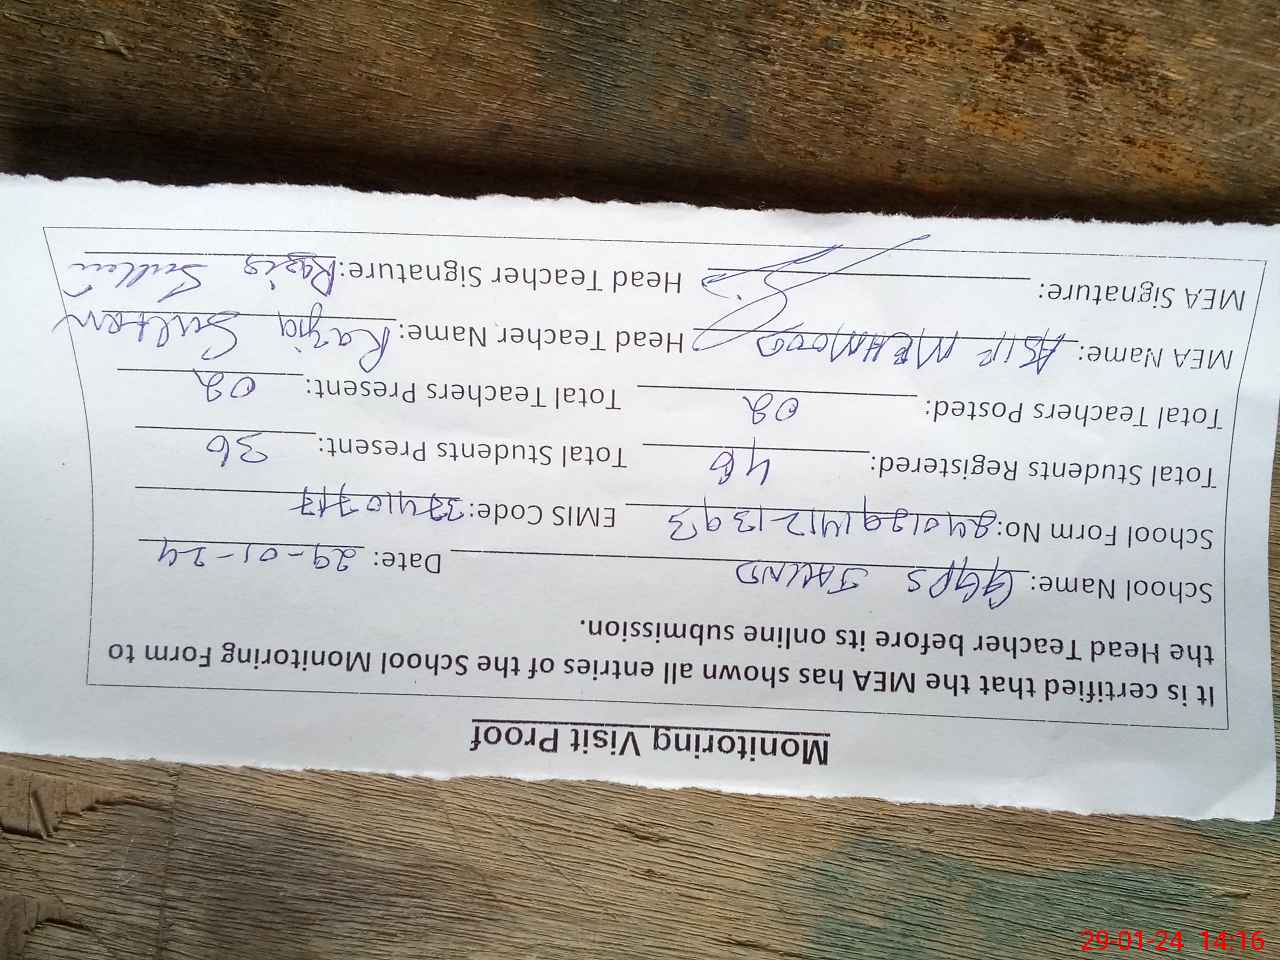 Monitoring Visit Proof
It is certified that the MEA has shown all entries of the School Monitoring Form to
the Head Teacher before its online submission.
School Name: GGPS JALIND Date: 29-01-24
School Form No: 24012914121393 EMIS Code: 37410717
Total Students Registered: 46 Total Students Present: 36
Total Teachers Posted: 02 Total Teachers Present: 02
MEA Name: ASIF MEHMOOD Head Teacher Name: Razia Sultan
MEA Signature: Head Teacher Signature: Razia
29-01-24 14:16